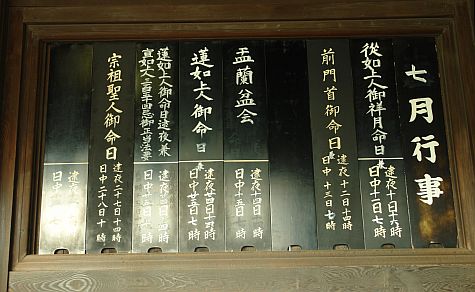 七月行事
從如上人御祥月命日
逮夜 十一日 十四時
日中 十二日 七時
前門首御命日
逮夜 十二日 十四時
日中 十三日 七時
盂蘭盆会
逮夜 十四日 時
日中 十五日 時
蓮如上人御命日
逮夜 廿四日 十四時
日中 廿五日 七時
蓮如上人御命日逮夜兼
逮夜 十四日 時
日中 十五日 時
宗祖聖人御命日
逮夜 二十七日 十四時
日中 二十八日 十時
逮夜
日中